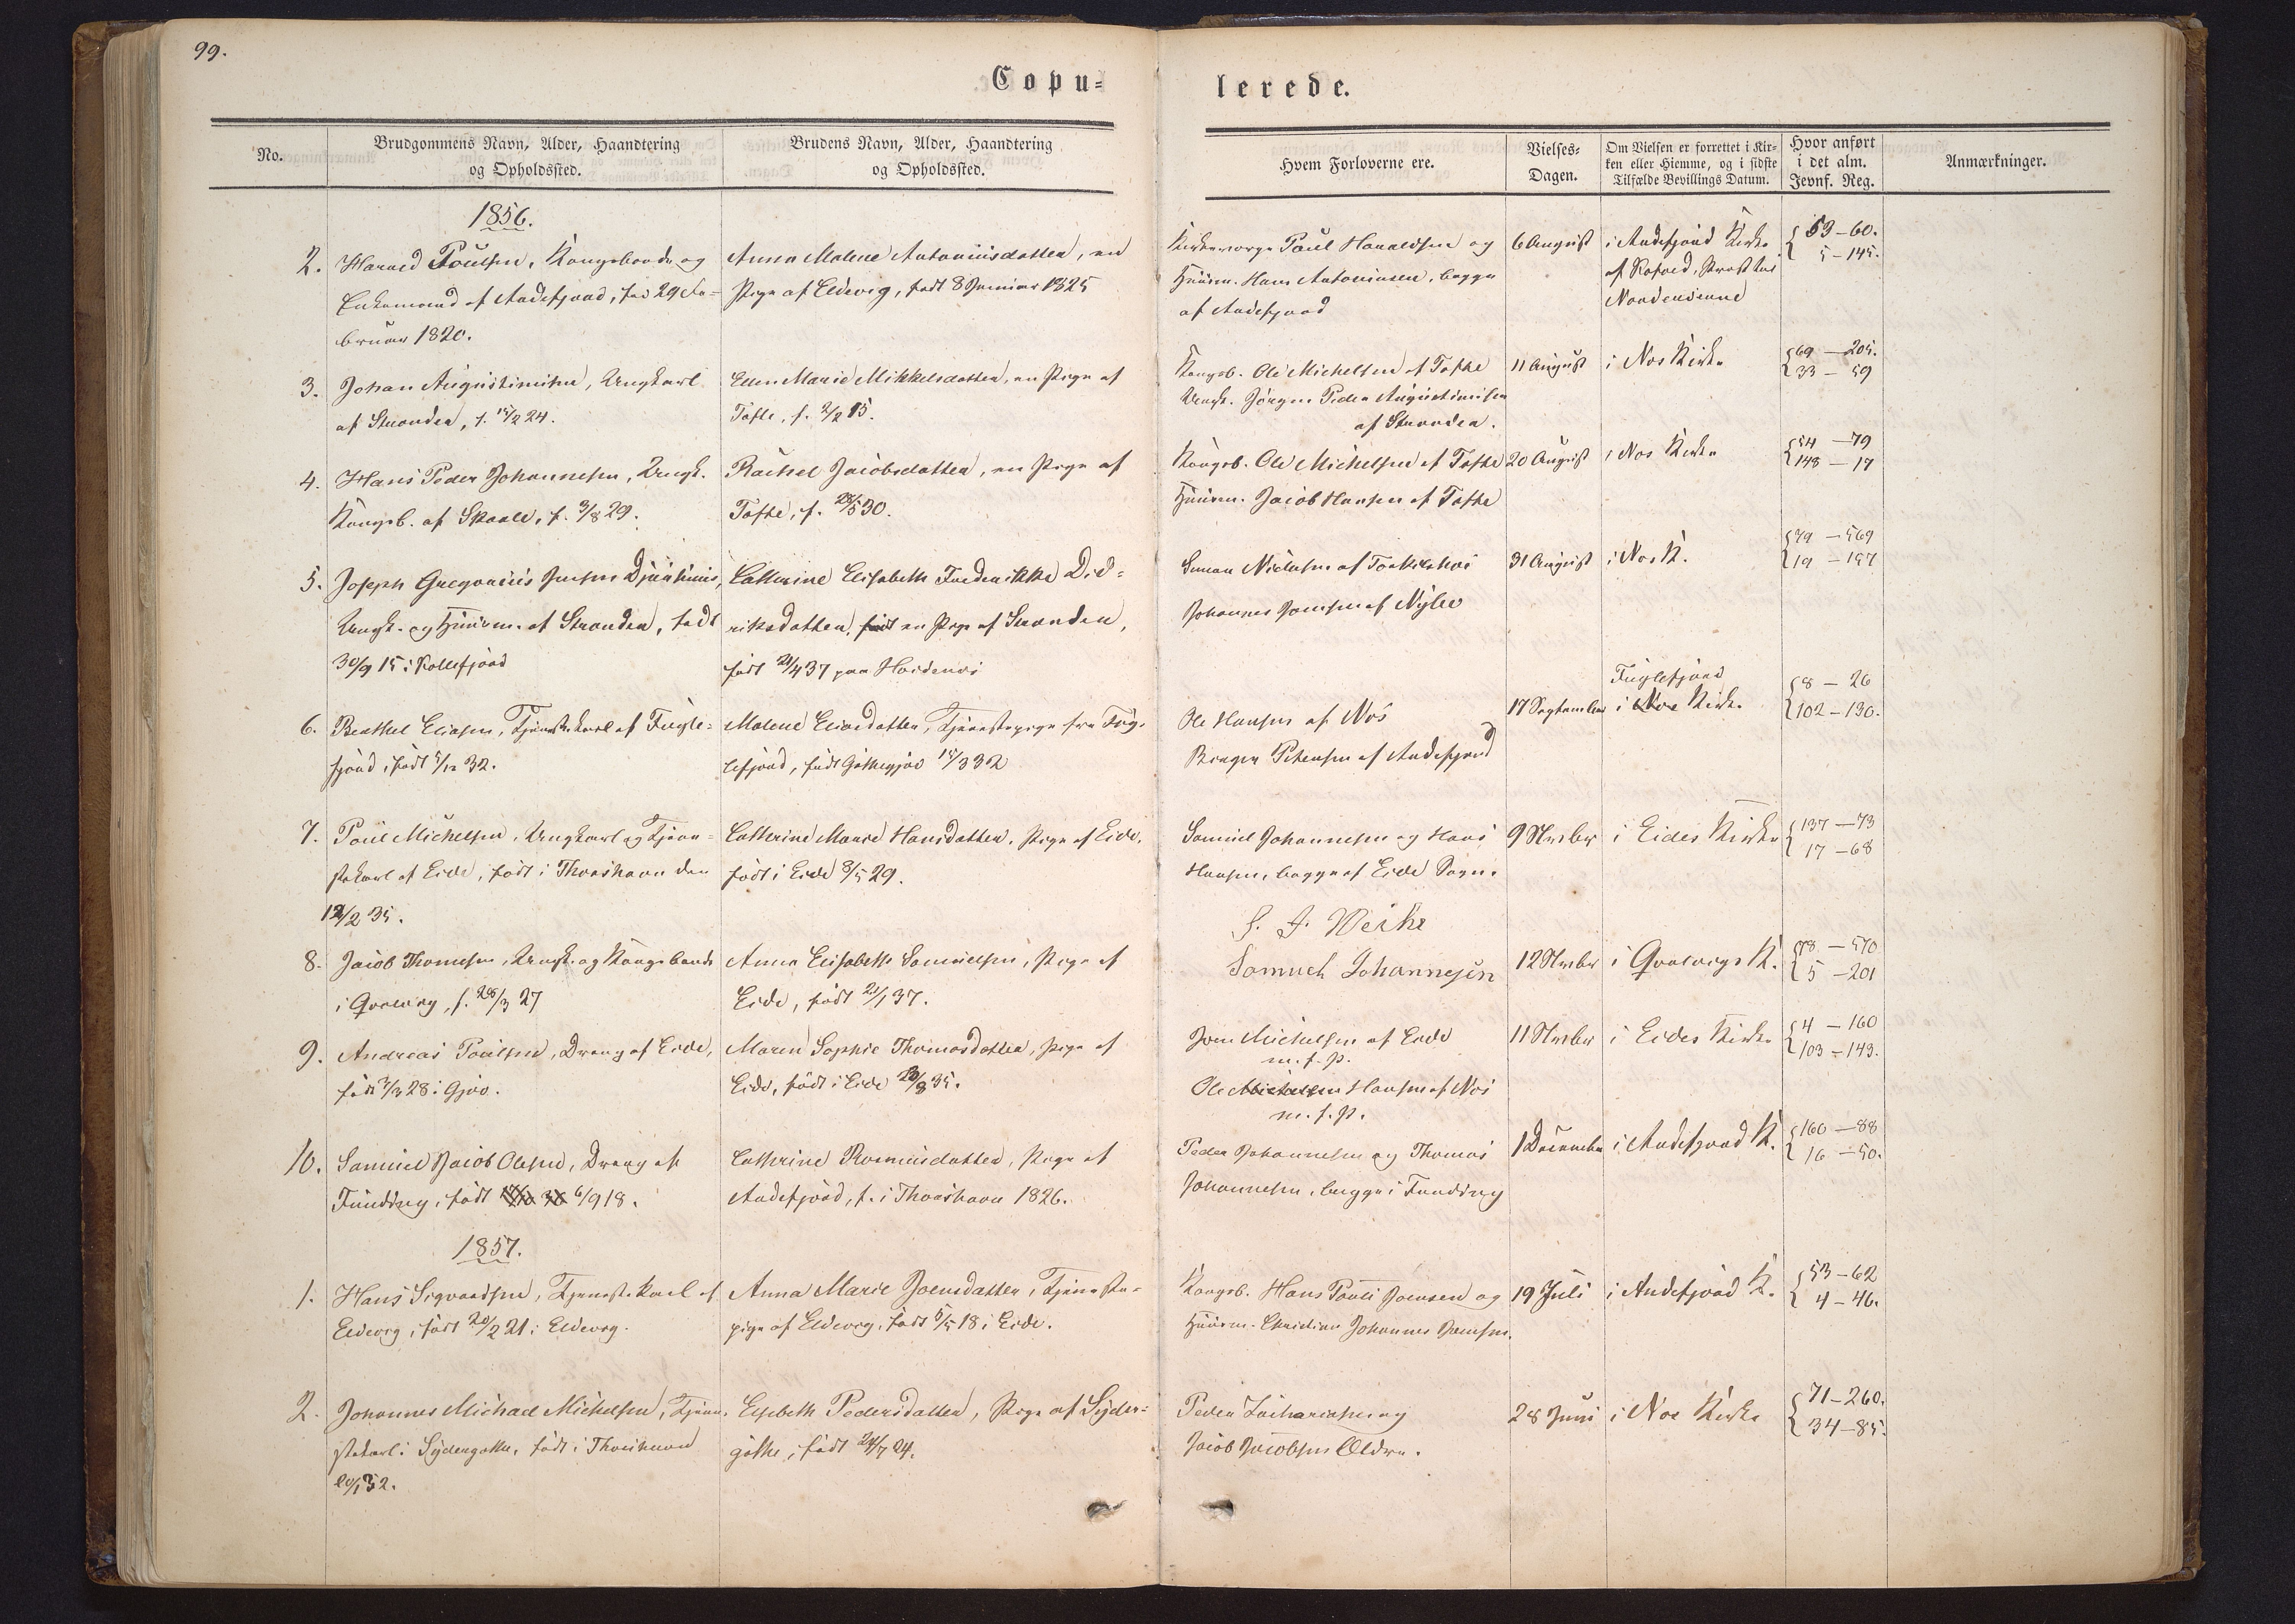 99.
Copu=
lerede.
No.
Brudgommens Navn, Alder, Haandtering
og Opholdssted.
Brudens Navn, Alder, Haandtering
og Opholdssted.
Hvem Forloverne ere.
Vielses-
Dagen.
Om Vielsen er forrettet i Kir-
ken eller Hiemme, og i sidste
Tilfælde Bevillings Datum.
Hvor anført
i det alm.
Jevnf. Reg.
Anmærkninger.
1856.
2. Harald Poulsen, Kongsbonde og
Enkemand af Andefjord, fød 29 Fe=
bruar 1820.
Anna Malene Antoniusdatter, en
Pige af Eldevig, født 8 Januar 1825
Kirkeværge Poul Haraldsen og
Huusm. Hans Antoniusen, begge
af Andefjord
6 August
i Andefjord Kirke
af Provst
53-60.
5-145.
3. Johan Augustinusen, Ungkarl
af Strander, f. 15/2 24.
Ellen Marie Mikkelsdatter, en Pige af
Tofte, f. 2/2 15.
Kongsb. Ole Michelsen af Tofte
Ungk. Jørgen Peder Augustinusen
af Strander.
11 August
i Nos Kirke
69-205.
33-59
4. Hans Peder Johannesen, Ungk.
Kongsb. af Skaale, f. 3/8 29.
Rachel Jacobsdatter, en Pige af
Tofte, f. 28/5 30.
Kongsb. Ole Michelsen af Tofte
Huusm. Jacob Hansen af Tofte
20 August
i Nos Kirke
54-79
148-17
5. Joseph Gregorius Jensen Djurhuus,
Ungk. og Huusm. af Strander, født
30/9 15 i Kollefjord
Catherine Elisabeth Frederikke Did=
riksdatter, født en Pige af Strander,
født 21/4 37 paa
Simon Nielsen af
Johannes Joensen af
31 August
i Nos K.
79-569
19-157
6. Berthel Eliasen, Tjenestekarl af Fugle=
fjord, født 5/12 32.
Malene Eliasdatter, Tjenestepige fra Fug=
lefjord, født Gøthegjov 15/3 32
Ole Hansen af Nos
Petersen af Andefjord
17 September
Fuglefjord
i Nos Kirke
8-26
102-130.
7. Poul Michelsen, Ungkarl og Tjene=
stekarl af Eide, født i Thorshavn den
12/2 35.
Catherine Marie Hansdatter, Pige af Eide,
født i Eide 8/5 29.
Samuel Johannesen og Hans
Hansen, begge af Eide Sogn.
9 Novbr
i Eides Kirke
137-73
17-68
8. Jacob Thomesen, Ungk. og Kongsbonde
i Qvalvig, f. 28/3 27
Anna Elisabeth Samuelsen, Pige af
Eide, født 21/1 37.
S. J. Weihe
Samuel Johannesen
12 Novbr
i Qvalvigs K.
78-570
5-201
9. Andreas Poulsen, Dreng af Eide,
født 7/3 28 i Gjov.
Maren Sophie Thomasdatter, Pige af
Eide, født i Eide 35.
Joen Michelsen af Eide
m. f. P.
Ole Michelsen Hansen af Nos
m. f. P.
11 Novbr
i Eides Kirke
4-160
103-143.
10. Samuel Jacob Olesen, Dreng af
Funding, født 6/9 18.
Catherine Rasmusdatter, Pige af
Andefjord, f. i Thorshavn 1826.
Peder Johannesen og Thomas
Johannesen, begge i Funding
1 December
i Andefjord K.
160-88
16-50.
1857.
1. Hans Sigvardsen, Tjenestekarl af
Eldevig, født 20/2 21 i Eldevig.
Anna Marie Joensdatter, Tjeneste-
pige af Eldevig, født 5/5 18 i Eide.
Kongsb. Hans Pauli Joensen og
Huusm. Christian Johannes Joensen.
19 Juli
i Andefjord K.
53-62
4-46.
2. Johannes Michael Michelsen, Tjene-
stekarl i Sydergøthe, født i Thorshavn
20/1 32.
Elsebeth Pedersdatter, Pige af Syder=
gøthe, født 24/7 24.
Peder Zachariasen og
Jacob Jacobsen Ældre.
28 Juni
i Nos Kirke
71-260.
34-85.